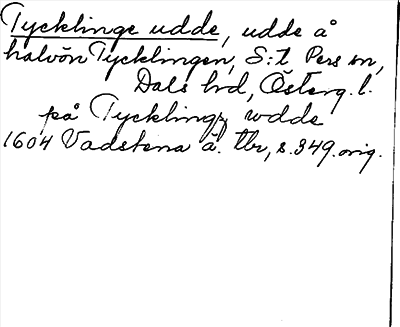 Tycklinge udde, udde å
halvön Tycklingen, S:t Pers sn,
Dals hrd, Österg. l.
på Tyckling wdde
1604 Vadstena ä. tbr, s. 349. orig.